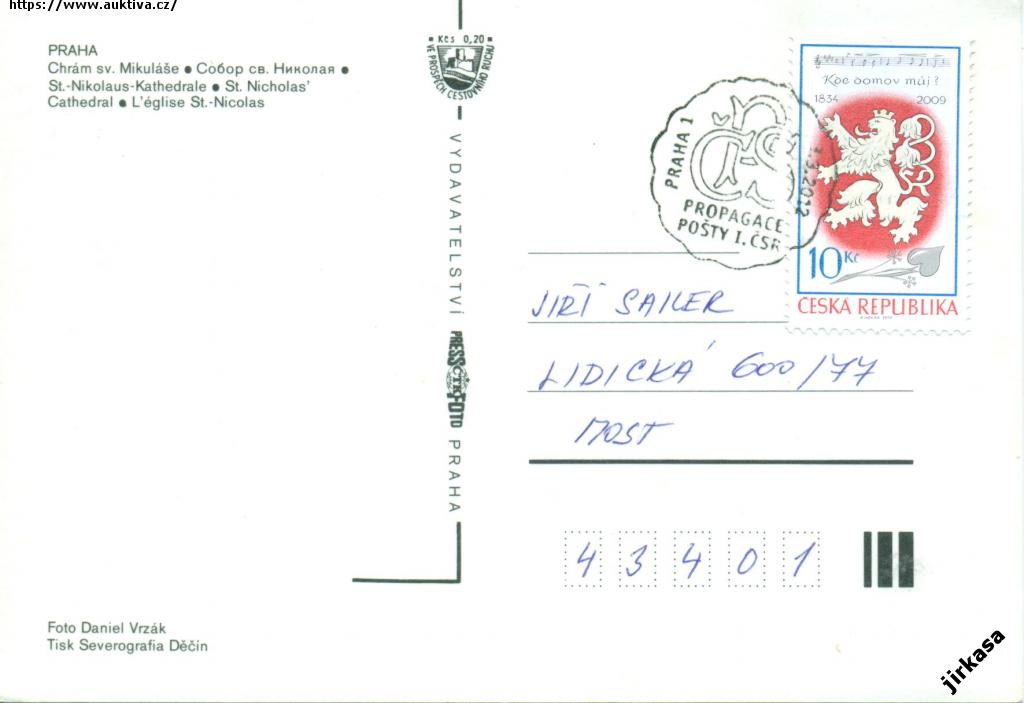 https://www.auktiva.cz/
PRAHA
Chrám sv. Mikuláše ● Собор св. Николая ●
St.-Nikolaus-Kathedrale ● St. Nicholas'
Cathedral ● L'église St.-Nicolas
Kčs 0,20
VE PROSPĚCH CESTOVNÍHO RUCHU
VYDAVATELSTVÍ PRESSFOTO PRAHA
ČTK
PRAHA 1
PROPAGACE
POŠTY I. ČSR
3.2012
Kde domov můj?
1834 2009
10 Kč
ČESKA REPUBLIKA
JIŘÍ SAILER
LIDICKÁ 600/77
MOST
43401
Foto Daniel Vrzák
Tisk Severografia Děčín
jirkasa